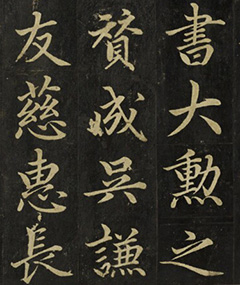 書大勲之
賛成呉謙
友慈惠長